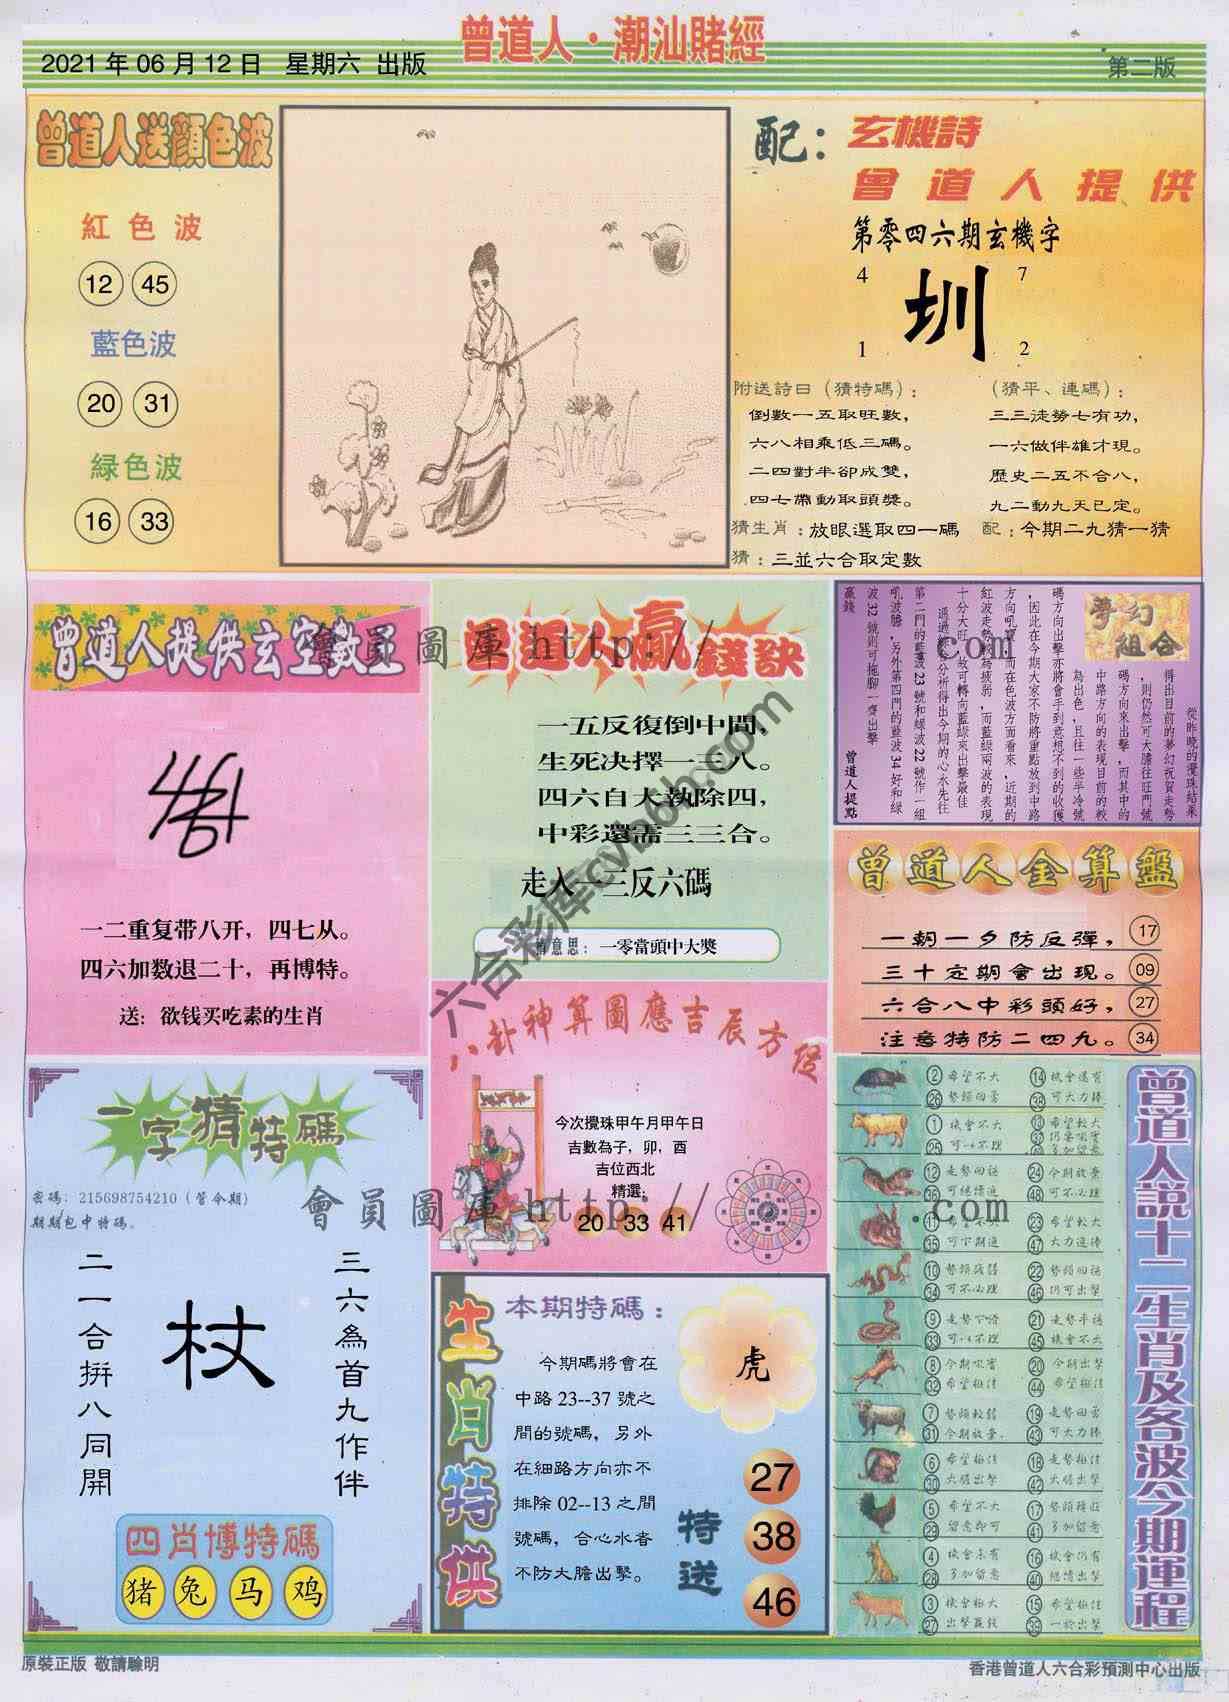 曾道人·潮汕賭經
2021年06月12日 星期六 出版
第二版
曾道人送顏色波
紅色波
12 45
藍色波
20 31
緑色波
16 33
配：
玄機詩
曾道人提供
第零四六期玄機字
4 7
圳
1 2
附送詩曰（猜特碼）：
倒數一五取旺數，
六八相乘低三碼。
二四對半卻成雙，
四七帶動取頭獎。
（猜平、連碼）：
三三徒勞七有功，
一六做伴雄才現。
歷史二五不合八，
九二動九天已定。
猜生肖：放眼選取四一碼
配：今期二九猜一猜
猜：三並六合取定數
曾道人提供玄空數王
一二重复带八开，四七从。
四六加数退二十，再博特。
送：欲钱买吃素的生肖
曾道人贏錢訣
一五反復倒中間，
生死决擇一三八。
四六自大執除四，
中彩還需三三合。
走入 三反六碼
一零當頭中大獎
夢幻組合
從昨晚的攪珠結果
得出目前的夢幻祝賀走勢
，則仍然可大膽往旺門號
碼方向來出擊，而其中的
中路方向的表現目前的較
為出色，且往一些半冷號
碼方向出擊亦將會手到意想不到的收獲
，因此在今期大家不防將重點放到中路
方向吼實，而在色波方面看來，近期的
紅波走勢較為疲弱，而藍綠兩波的表現
十分大旺，故可轉向藍綠來出擊最佳
第二門的藍波23號和綠波22號作一組
吼波膽，另外第四門的藍波34好和綠
波32號則可拖腳一齊出擊
贏錢
曾道人提點
曾道人金算盤
一朝一夕防反彈， 17
三十定期會出現。 09
六合八中彩頭好， 27
注意特防二四九。 34
八卦神算圖應吉辰方位
今次攪珠甲午月甲午日
吉數為子，卯，酉
吉位西北
精選：
20 33 41
一字猜特碼
密碼：215698754210（管今期）
期期包中特碼。
二一合拼八同開
杖
三六為首九作伴
四肖博特碼
猪 兔 马 鸡
生肖特供
本期特碼：
今期碼將會在
中路23--37號之
間的號碼，另外
在細路方向亦不
排除02--13之間
號碼，合心水者
不防大膽出擊。
虎
特送
27
38
46
曾道人説十二生肖及各波今期運程
2 希望不大 14 機會還有
26 勢頭回勇 38 可大力捧
1 機會不大
25
12 走勢回穩 24 今期放棄
36 48 可不必理
11 23 希望較大
35 47 大力追捧
10 22 勢頭回穩
34 可不必理 46 仍可出擊
9 21
33 45 機會不大
8 20 今期出擊
32 希望極佳 44 希望極佳
7 勢頭較弱 19 走勢回勇
31 今期放棄 43 可大力捧
6 希望極佳 18 走勢極佳
30 大膽出擊 42 大膽出擊
5 希望不大 17
29 留意即可 41 多加留意
4 機會未有 16 機會仍有
28 多加留意 40
3 機會極大 15 希望極佳
27 39
會員圖庫 http:// com
會員圖庫 http:// .com
六合彩库cvb6b.com
原裝正版 敬請驗明
香港曾道人六合彩預測中心出版